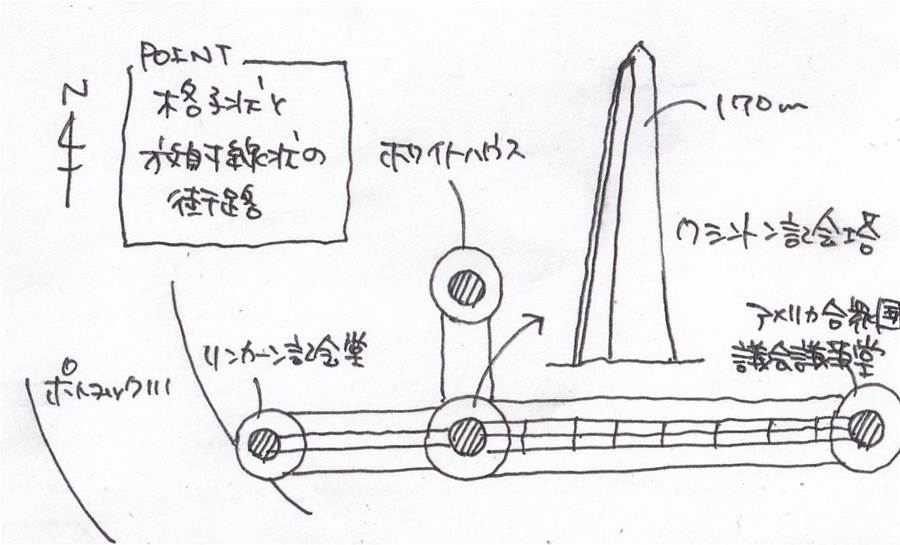 POINT
格子状と
放射線状の
街路
N
ホワイトハウス
170m
ワシントン記念塔
アメリカ合衆国
議会議事堂
リンカーン記念堂
ポトマック川